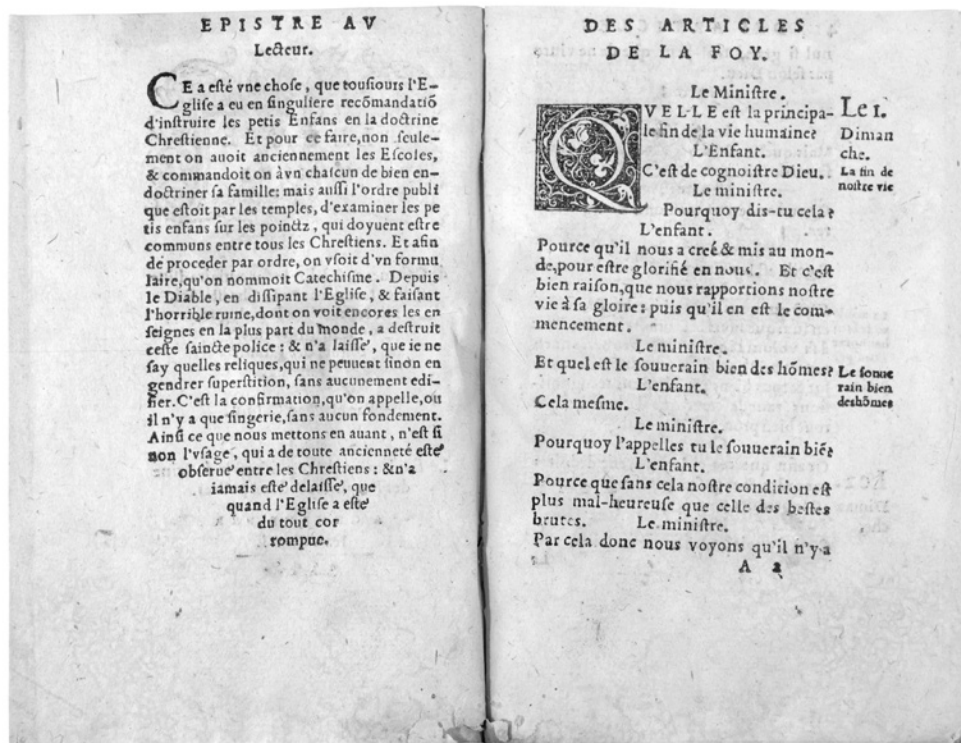 EPISTRE AV
Lecteur.
CE a esté vne chose, que tousiours l'E-
glise a eu en singuliere recõmandatiõ
d'instruire les petis Enfans en la doctrine
Chrestienne. Et pour ce faire, non seule-
ment on auoit anciennement les Escoles,
& commandoit on àvn chascun de bien en-
doctriner sa famille: mais aussi l'ordre publi
que estoit par les temples, d'examiner les pe
tis enfans sur les poinctz, qui doyuent estre
communs entre tous les Chrestiens. Et afin
de proceder par ordre, on vsoit d'vn formu
laire, qu'on nommoit Catechisme. Depuis
le Diable, en dissipant l'Eglise, & faisant
l'horrible ruine, dont on voit encores les en
seignes en la plus part du monde, a destruit
ceste saincte police: & n'a laissé, que ie ne
say quelles reliques, qui ne peuuent sinon en
gendrer superstition, sans aucunement edi-
fier. C'est la confirmation, qu'on appelle, ou
il n'y a que singerie, sans aucun fondement.
Ainsi ce que nous mettons en auant, n'est si
non l'vsage, qui a de toute ancienneté esté
obserué entre les Chrestiens: & n'a
iamais esté delaissé, que
quand l'Eglise a esté
du tout cor
rompue.
DES ARTICLES
DE LA FOY.
Le Ministre.
QVELLE est la principa-
le fin de la vie humaine?
L'Enfant.
C'est de cognoistre Dieu.
Le ministre.
Pourquoy dis-tu cela?
L'enfant.
Pource qu'il nous a creé & mis au mon-
de, pour estre glorifié en nous. Et c'est
bien raison, que nous rapportions nostre
vie à sa gloire: puis qu'il en est le com-
mencement.
Le ministre.
Et quel est le souuerain bien des hõmes?
L'enfant.
Cela mesme.
Le ministre.
Pourquoy l'appelles tu le souuerain biẽ?
L'enfant.
Pource que sans cela nostre condition est
plus mal-heureuse que celle des bestes
brutes. Le ministre.
Par cela donc nous voyons qu'il n'y a
A 2
Le 1.
Diman
che.
La fin de
nostre vie
Le souue
rain bien
des hõmes